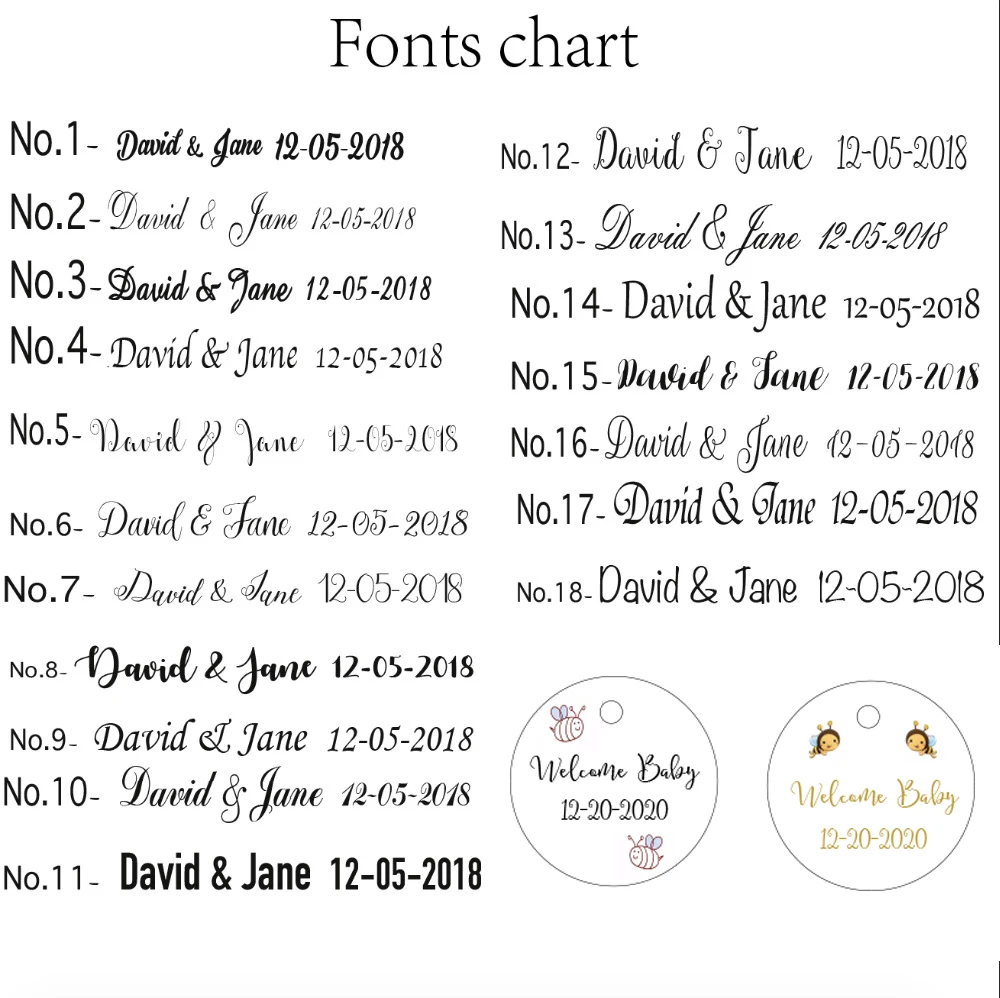 Fonts chart
No.1- David & Jane 12-05-2018
No.2- David & Jane 12-05-2018
No.3- David & Jane 12-05-2018
No.4- David & Jane 12-05-2018
No.5- David & Jane 12-05-2018
No.6- David & Jane 12-05-2018
No.7- David & Jane 12-05-2018
No.8- David & Jane 12-05-2018
No.9- David & Jane 12-05-2018
No.10- David & Jane 12-05-2018
No.11- David & Jane 12-05-2018
No.12- David & Jane 12-05-2018
No.13- David & Jane 12-05-2018
No.14- David & Jane 12-05-2018
No.15- David & Jane 12-05-2018
No.16- David & Jane 12-05-2018
No.17- David & Jane 12-05-2018
No.18- David & Jane 12-05-2018
Welcome Baby
12-20-2020
Welcome Baby
12-20-2020